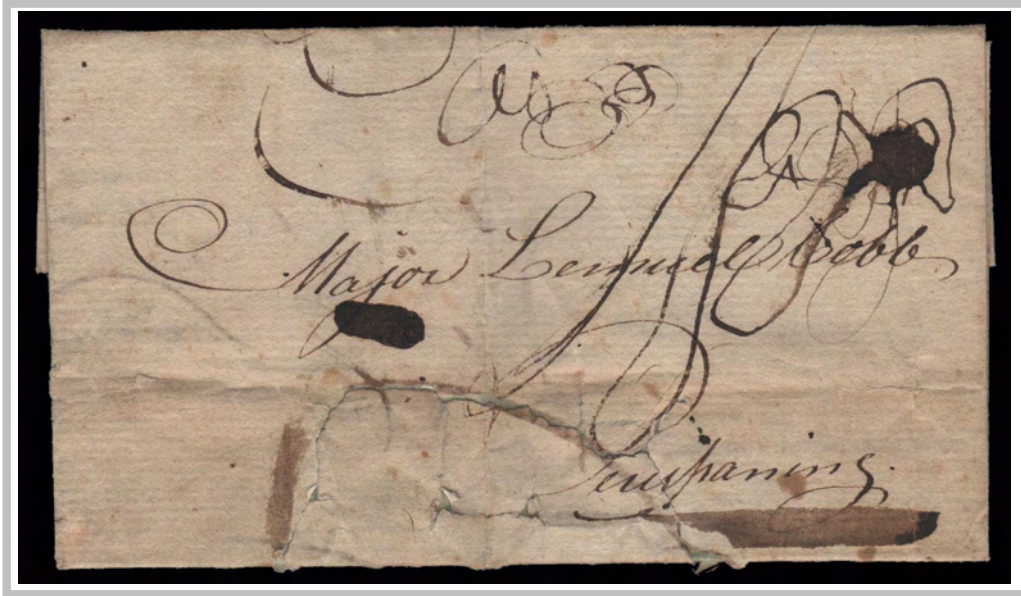 Major Lemuel Cobb
Persipaning